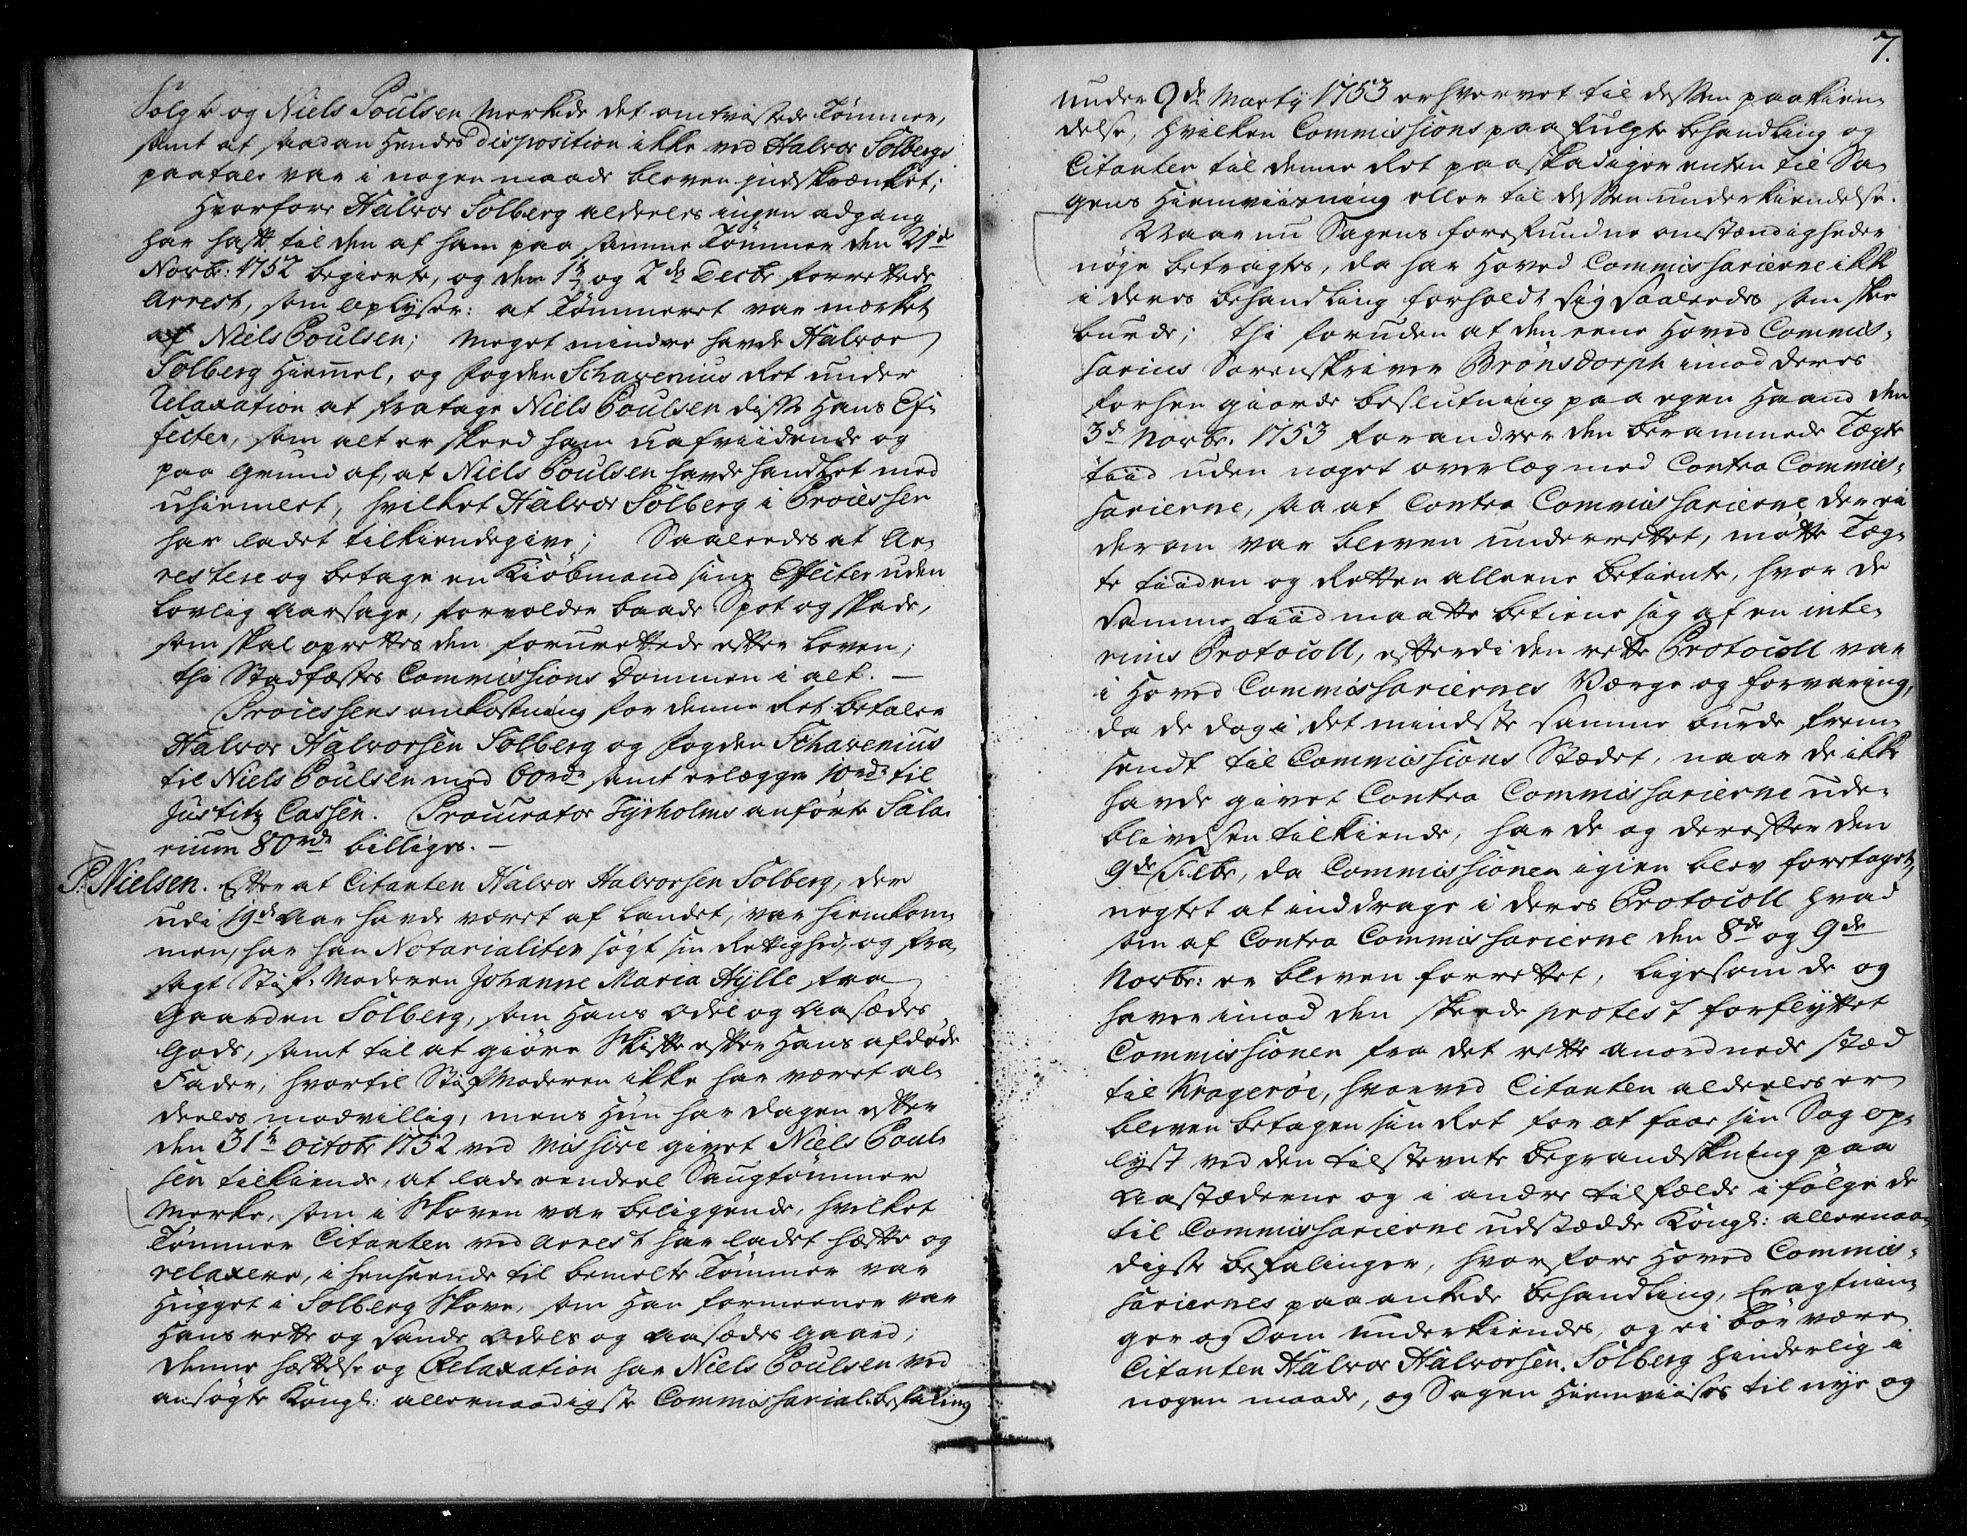 Solgte og Niels Poulsen Merkede det omtvistede Tømmer,
samt at saadan Hendes disposition ikke ved Halvor Solbergs
paatale var i nogen maade bleven indskrænket;
Hvorfore Halvor Solberg alderles ingen adgang
har haft til den af ham paa samme Tømmer den 21de
Novbr: 1752 begierte, og den 1te og 2de Decbr forrettede
Arrest, som oplyser: at Tømmeret var merket
af Niels Poulsen; Meget mindre havde Halvor
Solberg Hiemmel, og fogden Schavenius Ret under
Relaxation at fratage Niels Poulsen disse Hans Ef-
fecter, som alt er skeed ham uafviidende og
paa Grund af, at Niels Poulsen havde handlet med
uhiemlet, hvilket Halvor Solberg i Processen
har ladet tilkiendegive; Saaledes at Ar-
restere og betage en Kiöbmand sine Effecter uden
Lovlig aarsage, forvolder baade Spot og skade,
som skal oprettes den forurettede efter Loven;
thi Stadfæstes Commissions Dommen i alt. —
Processens omkostning for denne Ret betaler
Halvor Halvorsen Solberg og fogden Schavenius
til Niels Poulsen med 60rdr samt erlægger 10rdr til
Justitz Cassen. Procurator Tyrholms anførte Sala-
rium 80rdr billiges. —
P: Nielsen. Efter at Citanten Halvor Halvorsen Solberg, der
udi 19de Aar havde været af Landet, var hiemkom-
men, har han Notarialiter søgt sin Rettighed, og fra-
sagt Stif-Moderen Johanne Maria Hylle fra
Gaarden Solberg, som Hans Odel og Aasædes
Gods, samt til at giöre Skifte efter Hans afdøde
Fader, hvortil StifModeren ikke har været al-
deeles modvillig, mens Hun har dagen efter
den 31te Octobr 1752 ved Missive givet Niels Poul-
sen tilkiende, at lade eendeel Saugtømmer
Merke, som i Skoven var beliggende, hvilket
Tømmer Citanten ved Arrest har ladet hæfte og
relaxere, i henseende til bemelte Tømmer var
Hugget i Solberg Skove, som Han formeener var
Hans rette og sande Odels og Aasædes Gaard;
denne hæftelse og Relaxation har Niels Poulsen ved
ansøgte Kongl: allernaadigste Commissarial-befaling
7.
under 9de Martij 1753 erhvervet til dessen paakien-
delse, hvilken Commissions paafulgte behandling og
Citanten til denne Ret paaskadiger enten til Sa-
gens Hiemviisning eller til dessen underkiendelse.
Naar nu Sagens forefundne omstændigheder
nøye betragtes, da har Hoved Commissarierne ikke
i deres behandling forholdt sig saaledes som skee
burde; thi foruden at den eene Hoved Commis-
sarius Sorenskriver Brönsdorph imod deres
forhen giorde beslutning paa egen Haand den
3de Novbr. 1753 forandrer den berammede Tægte
tiid uden noget overlæg med Contra Commis-
sarierne, saa at Contra Commissarierne der ei
derom var bleven underrettet, mötte Tæg-
te tiiden og Retten alleene betiente, hvor de
samme tiid maatte betiene sig af en inte-
rims Protocoll, efterdi den rette Protocoll var
i Hoved Commissariernes Værge og forvaring,
da de dog i det mindste samme burde frem-
sendt til Commissions Stædet, naar de ikke
havde givet Contra Commissarierne ude-
blivelsen tilkiende, har de og derefter den
9de Xbr, da Commissionen igien blev foretaget,
negtet at inddrage i deres Protocoll hvad
som af Contra Commissarierne den 8de og 9de
Novbr: er bleven forrettet, ligesom de og
haver imod den skeede protest forflyttet
Commissionen fra det rette anordnede stæd
til Krageröe, hvorved Citanten alderles er
bleven betagen sin Ret for at faae sin Sag op-
lyst ved den tilstevnte begrandskning paa
Aastæderne og i andre tilfælde i fölge de
til Commissarierne udstædde Kongl: allernaa-
digste befalinger, hvorfore Hoved Commis-
sariernes paaankede behandling, Eragtnin-
ger og Dom underkiendes, og ei bör være
Citanten Halvor Halvorsen Solberg hinderlig i
nogen maade, og Sagen Hiemviises til nye og